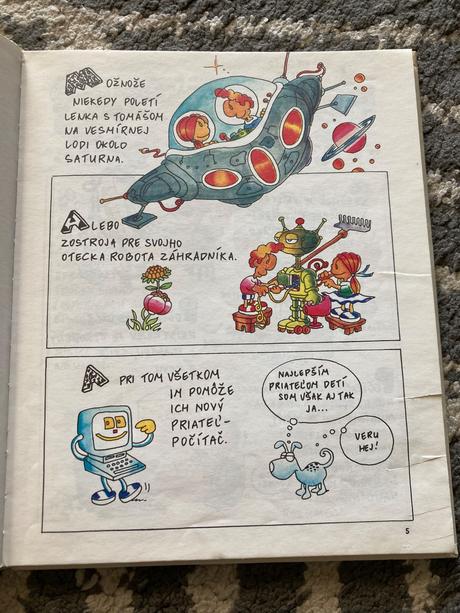 MOŽNOŽE
NIEKEDY POLETÍ
LENKA S TOMÁŠOM
NA VESMÍRNEJ
LODI OKOLO
SATURNA.
ALEBO
ZOSTROJA PRE SVOJHO
OTECKA ROBOTA ZÁHRADNÍKA.
A PRI TOM VŠETKOM
IM POMÔŽE
ICH NOVÝ
PRIATEĽ-
POČÍTAČ.
NAJLEPŠÍM
PRIATEĽOM DETÍ
SOM VŠAK AJ TAK
JA...
VERU
HEJ!
5